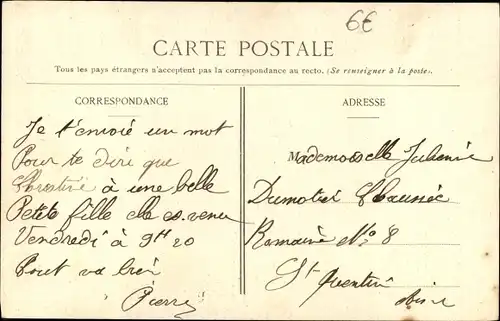 6€
CARTE POSTALE
Tous les pays étrangers n'acceptent pas la correspondance au recto. (Se renseigner à la poste).
CORRESPONDANCE
Je t'envoié un mot
Pour te diri que
à une belle
Petite fille elle es venu
Vendredi à 9H 20
Tout va bien
Pierre
ADRESSE
Mademoiselle
Dumotier Chaussée
Romaine No 8
St Quentin
Aisne